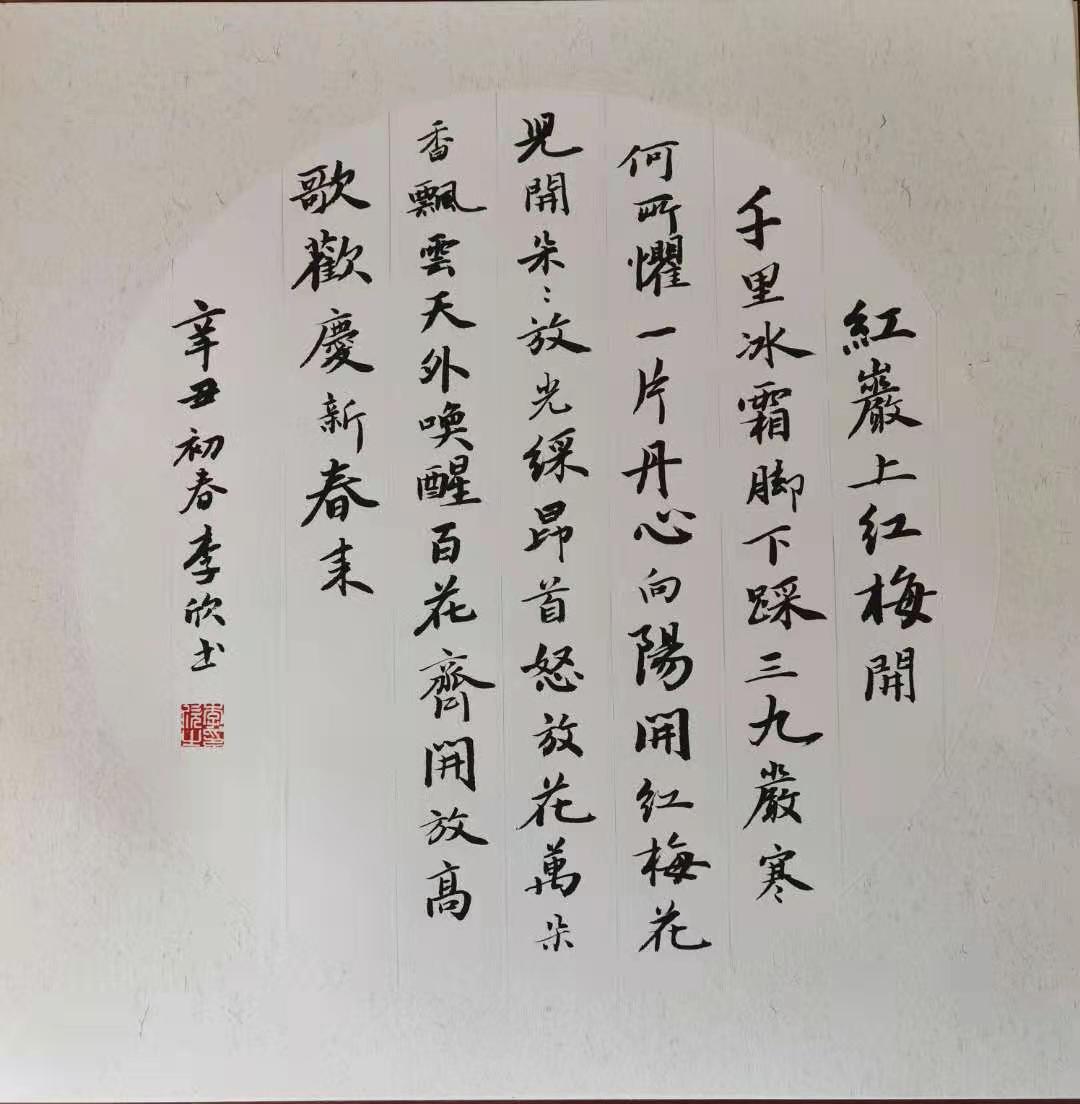 紅巖上红梅開
千里冰霜脚下踩三九嚴寒
何所懼一片丹心向陽開红梅花
兒開朵〻放光綵昂首怒放花萬朵
香飄雲天外喚醒百花齊開放高
歌歡慶新春来
辛丑初春李欣书